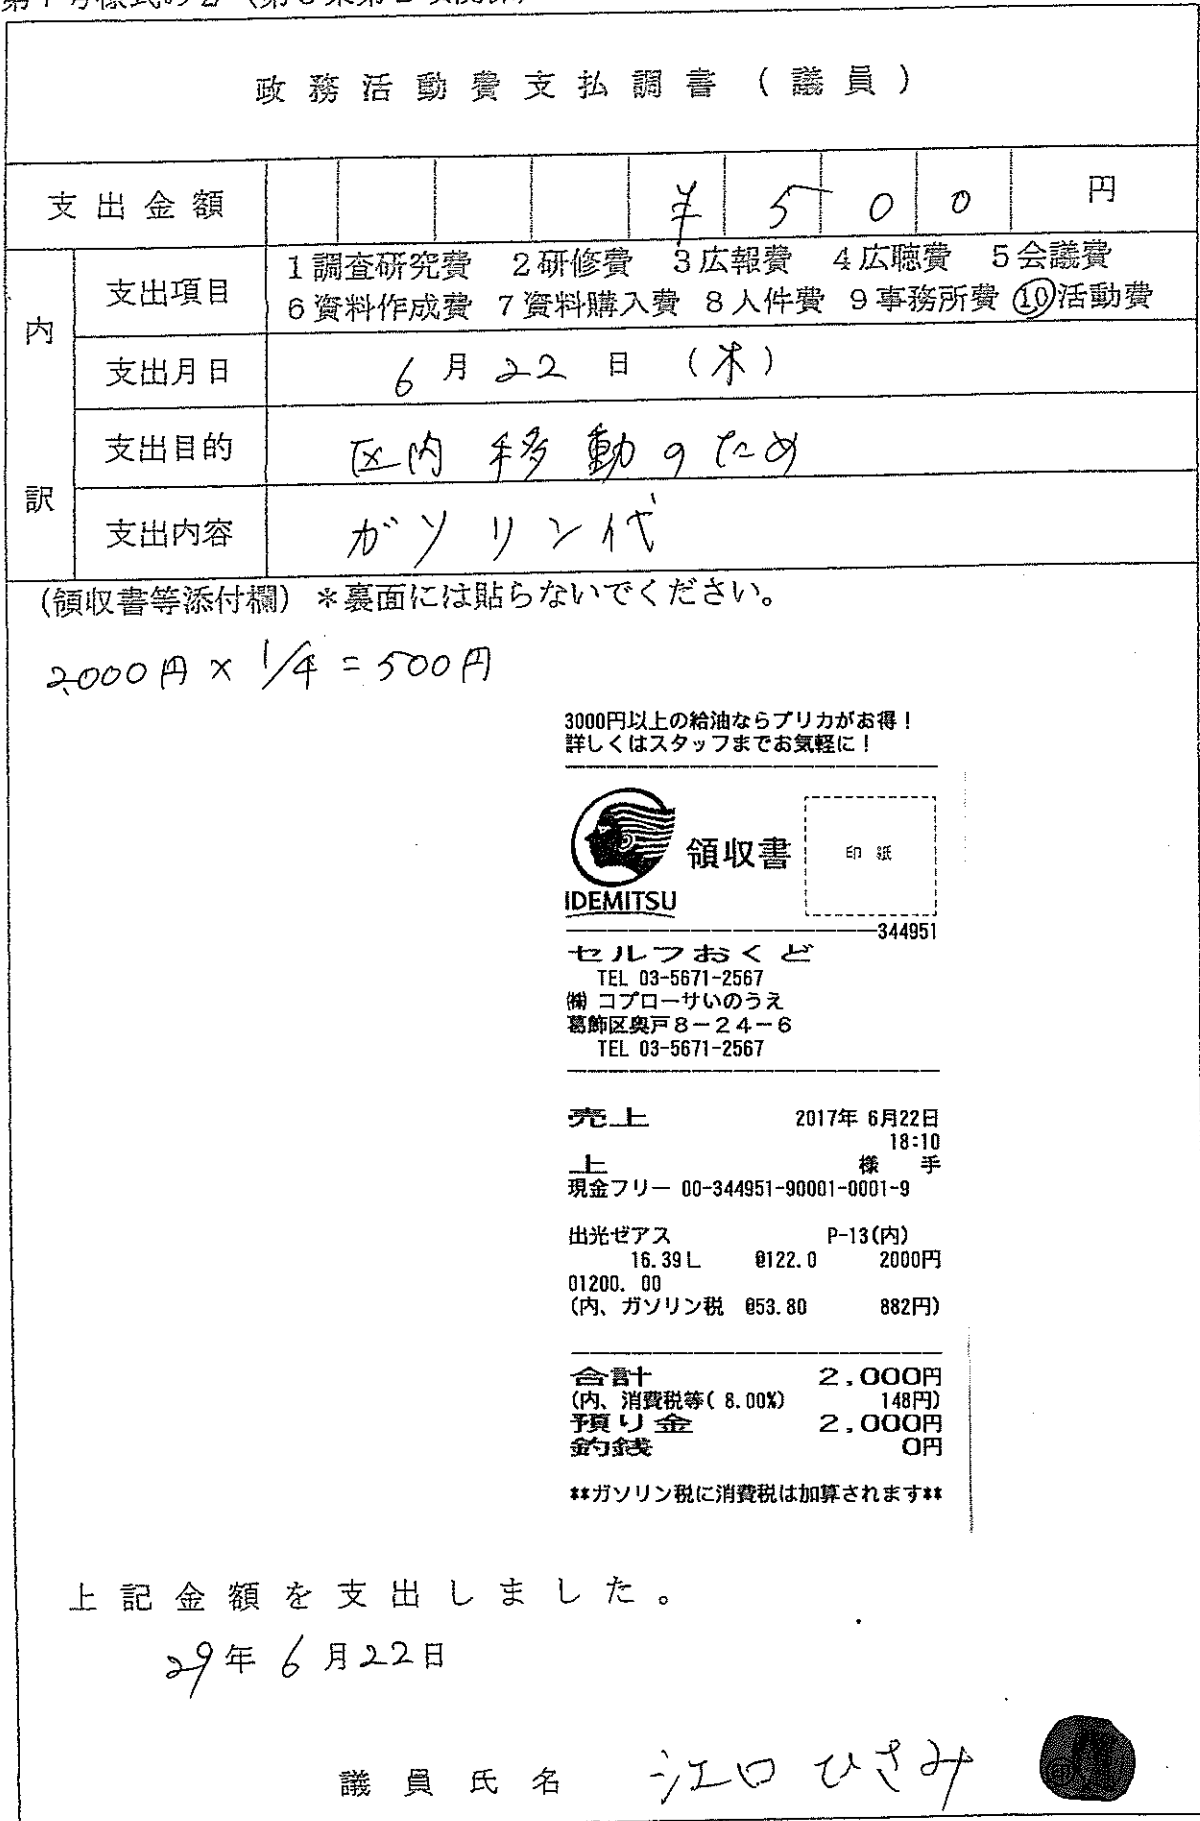 政務活動費支払調書（議員）
支出金額 ￥500 円
内訳
支出項目 1調査研究費 2研修費 3広報費 4広聴費 5会議費
6資料作成費 7資料購入費 8人件費 9事務所費 ⑩活動費
支出月日 6月22日（木）
支出目的 区内移動のため
支出内容 ガソリン代
（領収書等添付欄）＊裏面には貼らないでください。
2,000円×1/4=500円
3000円以上の給油ならプリカがお得！
詳しくはスタッフまでお気軽に！
領収書 印紙
IDEMITSU
344951
セルフおくど
TEL 03-5671-2567
㈱ コプローサいのうえ
葛飾区奥戸8－24－6
TEL 03-5671-2567
売上 2017年 6月22日
18:10
上 様 手
現金フリー 00-344951-90001-0001-9
出光ゼアス P-13(内)
16.39L @122.0 2000円
01200. 00
(内、ガソリン税 @53.80 882円)
合計 2,000円
(内、消費税等( 8.00%) 148円)
預り金 2,000円
釣銭 0円
**ガソリン税に消費税は加算されます**
上記金額を支出しました。
29年6月22日
議員氏名 江口ひさみ